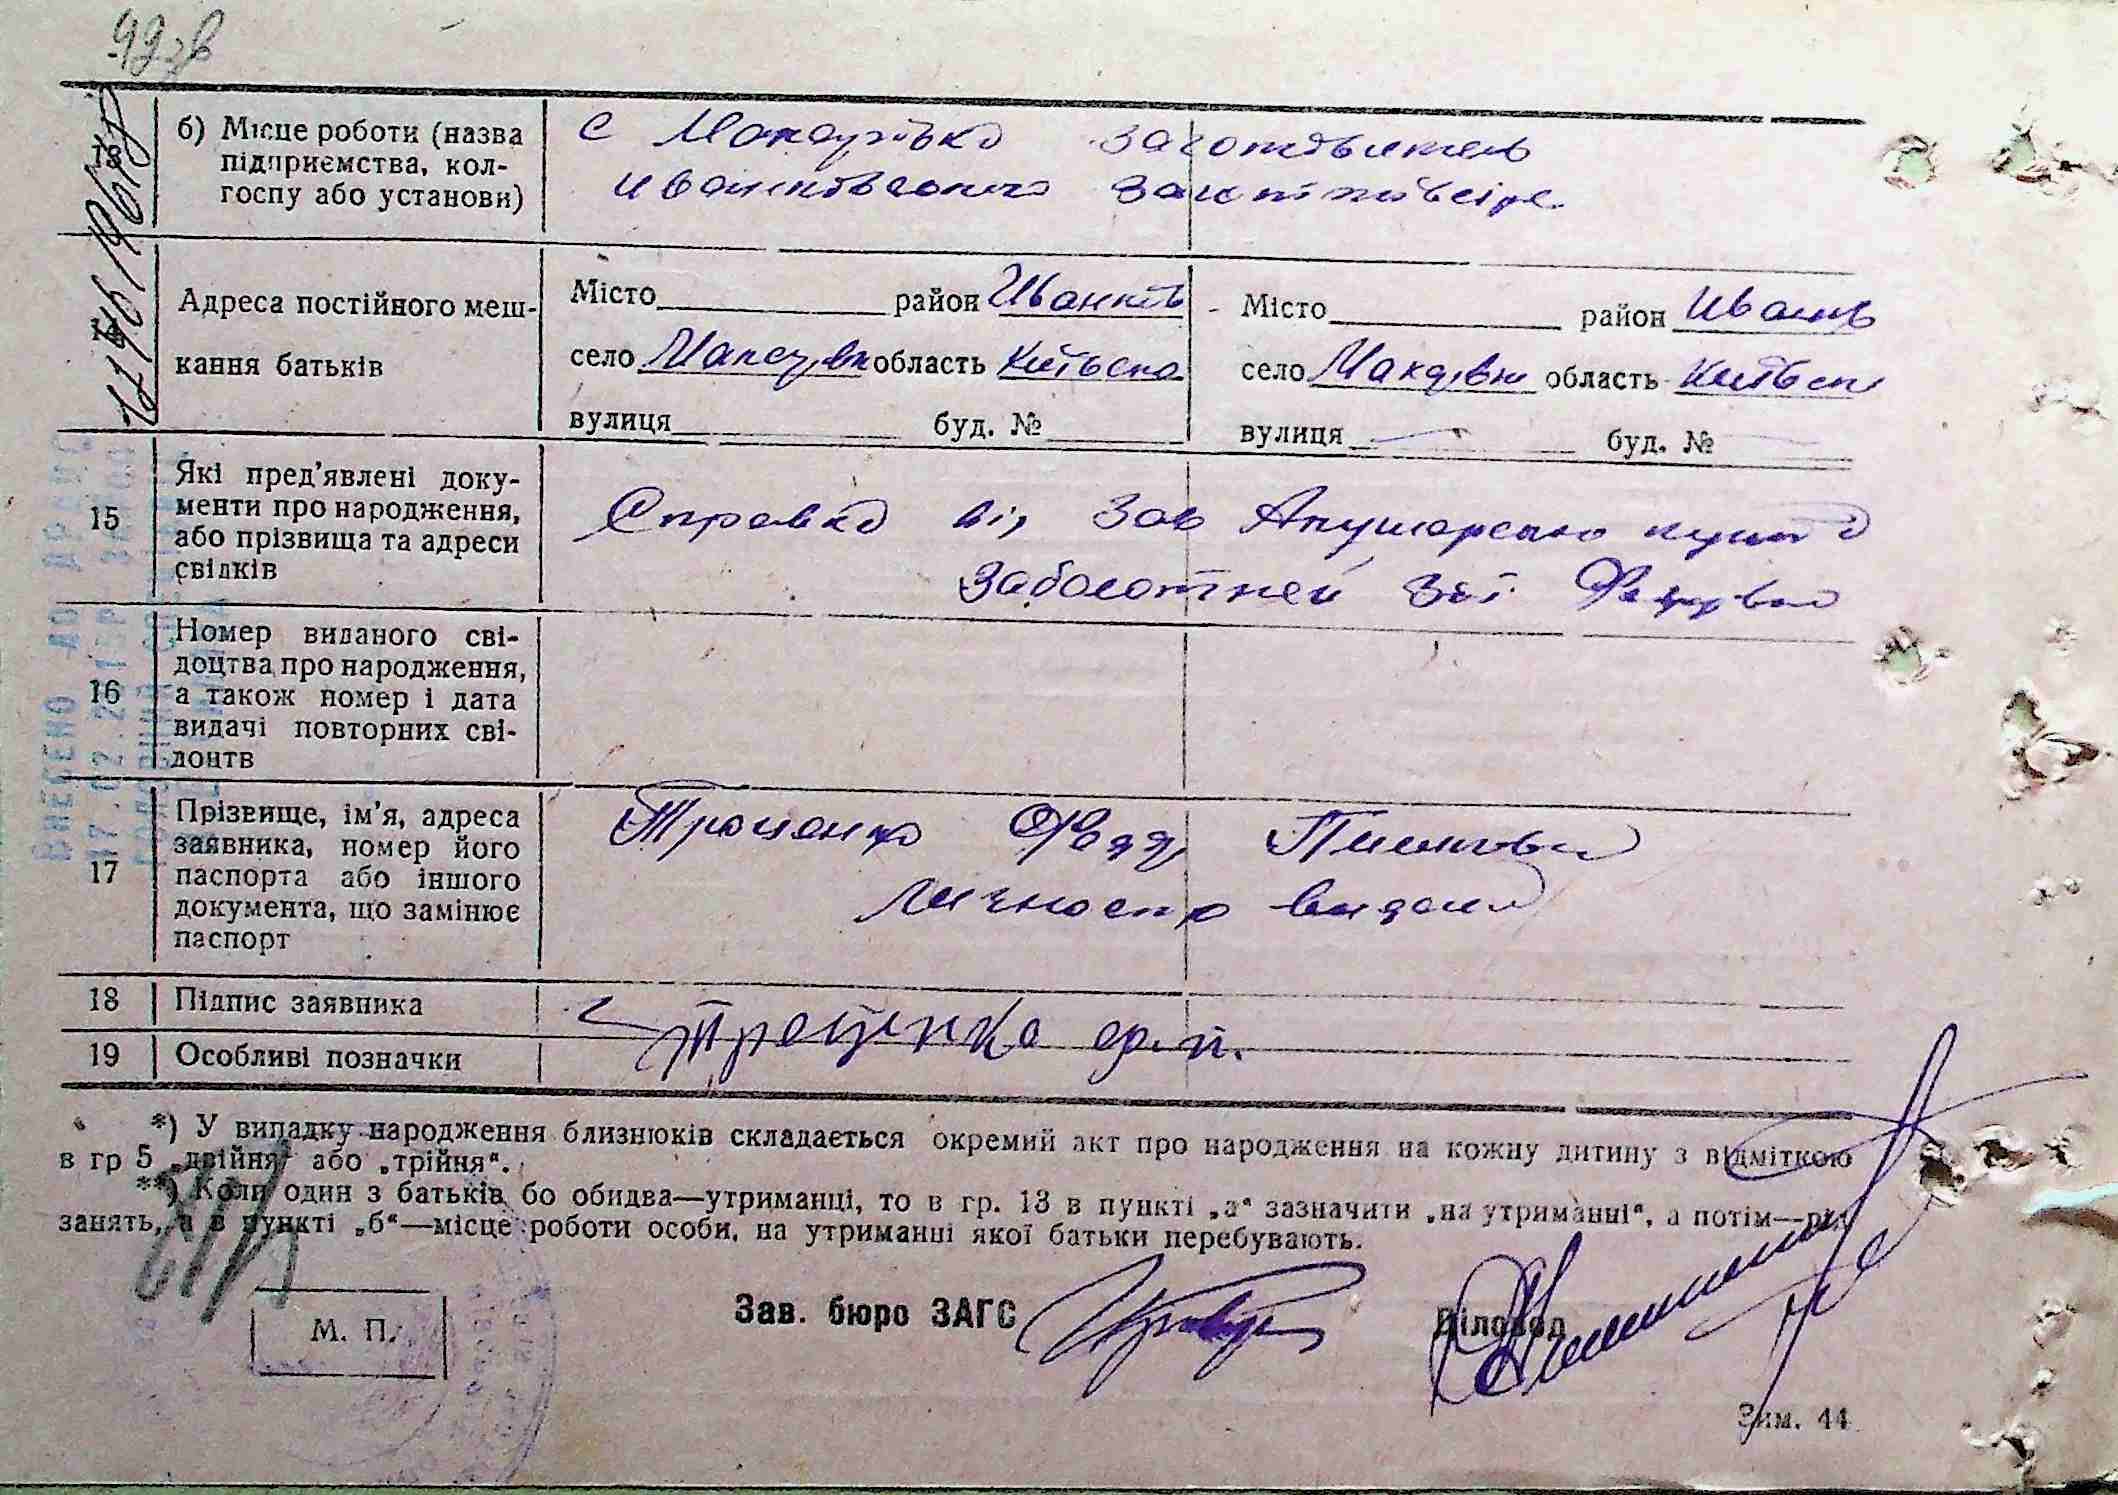 99 зв
13
б) Місце роботи (назва
підприємства, кол-
госпу або установи)
с Макарівка Заготовитель
14
Адреса постійного меш-
кання батьків
Місто район Иванків
село область Київська
вулиця буд. №
Місто район Иванків
село Макарівка область Київськ
вулиця буд. №
15
Які пред'явлені доку-
менти про народження,
або прізвища та адреси
свідків
Справка від Зав Акушерського пункта
Заболотней
16
Номер виданого сві-
доцтва про народження,
а також номер і дата
видачі повторних сві-
доцтв
17
Прізвище, ім'я, адреса
заявника, номер його
паспорта або іншого
документа, що замінює
паспорт
Троценко
личность
18
Підпис заявника
Троценко ф.п.
19
Особливі позначки
*) У випадку народження близнюків складається окремий акт про народження на кожну дитину з відміткою
в гр 5 „двійня" або „трійня".
**) Коли один з батьків бо обидва—утриманці, то в гр. 13 в пункті „а" зазначити „на утриманні", а потім—рід
занять, а в пункті „б"—місце роботи особи, на утриманні якої батьки перебувають.
М. П.
Зав. бюро ЗАГС
Діловод
Зим. 44
ВНЕСЕНО ДО ДРАЦС